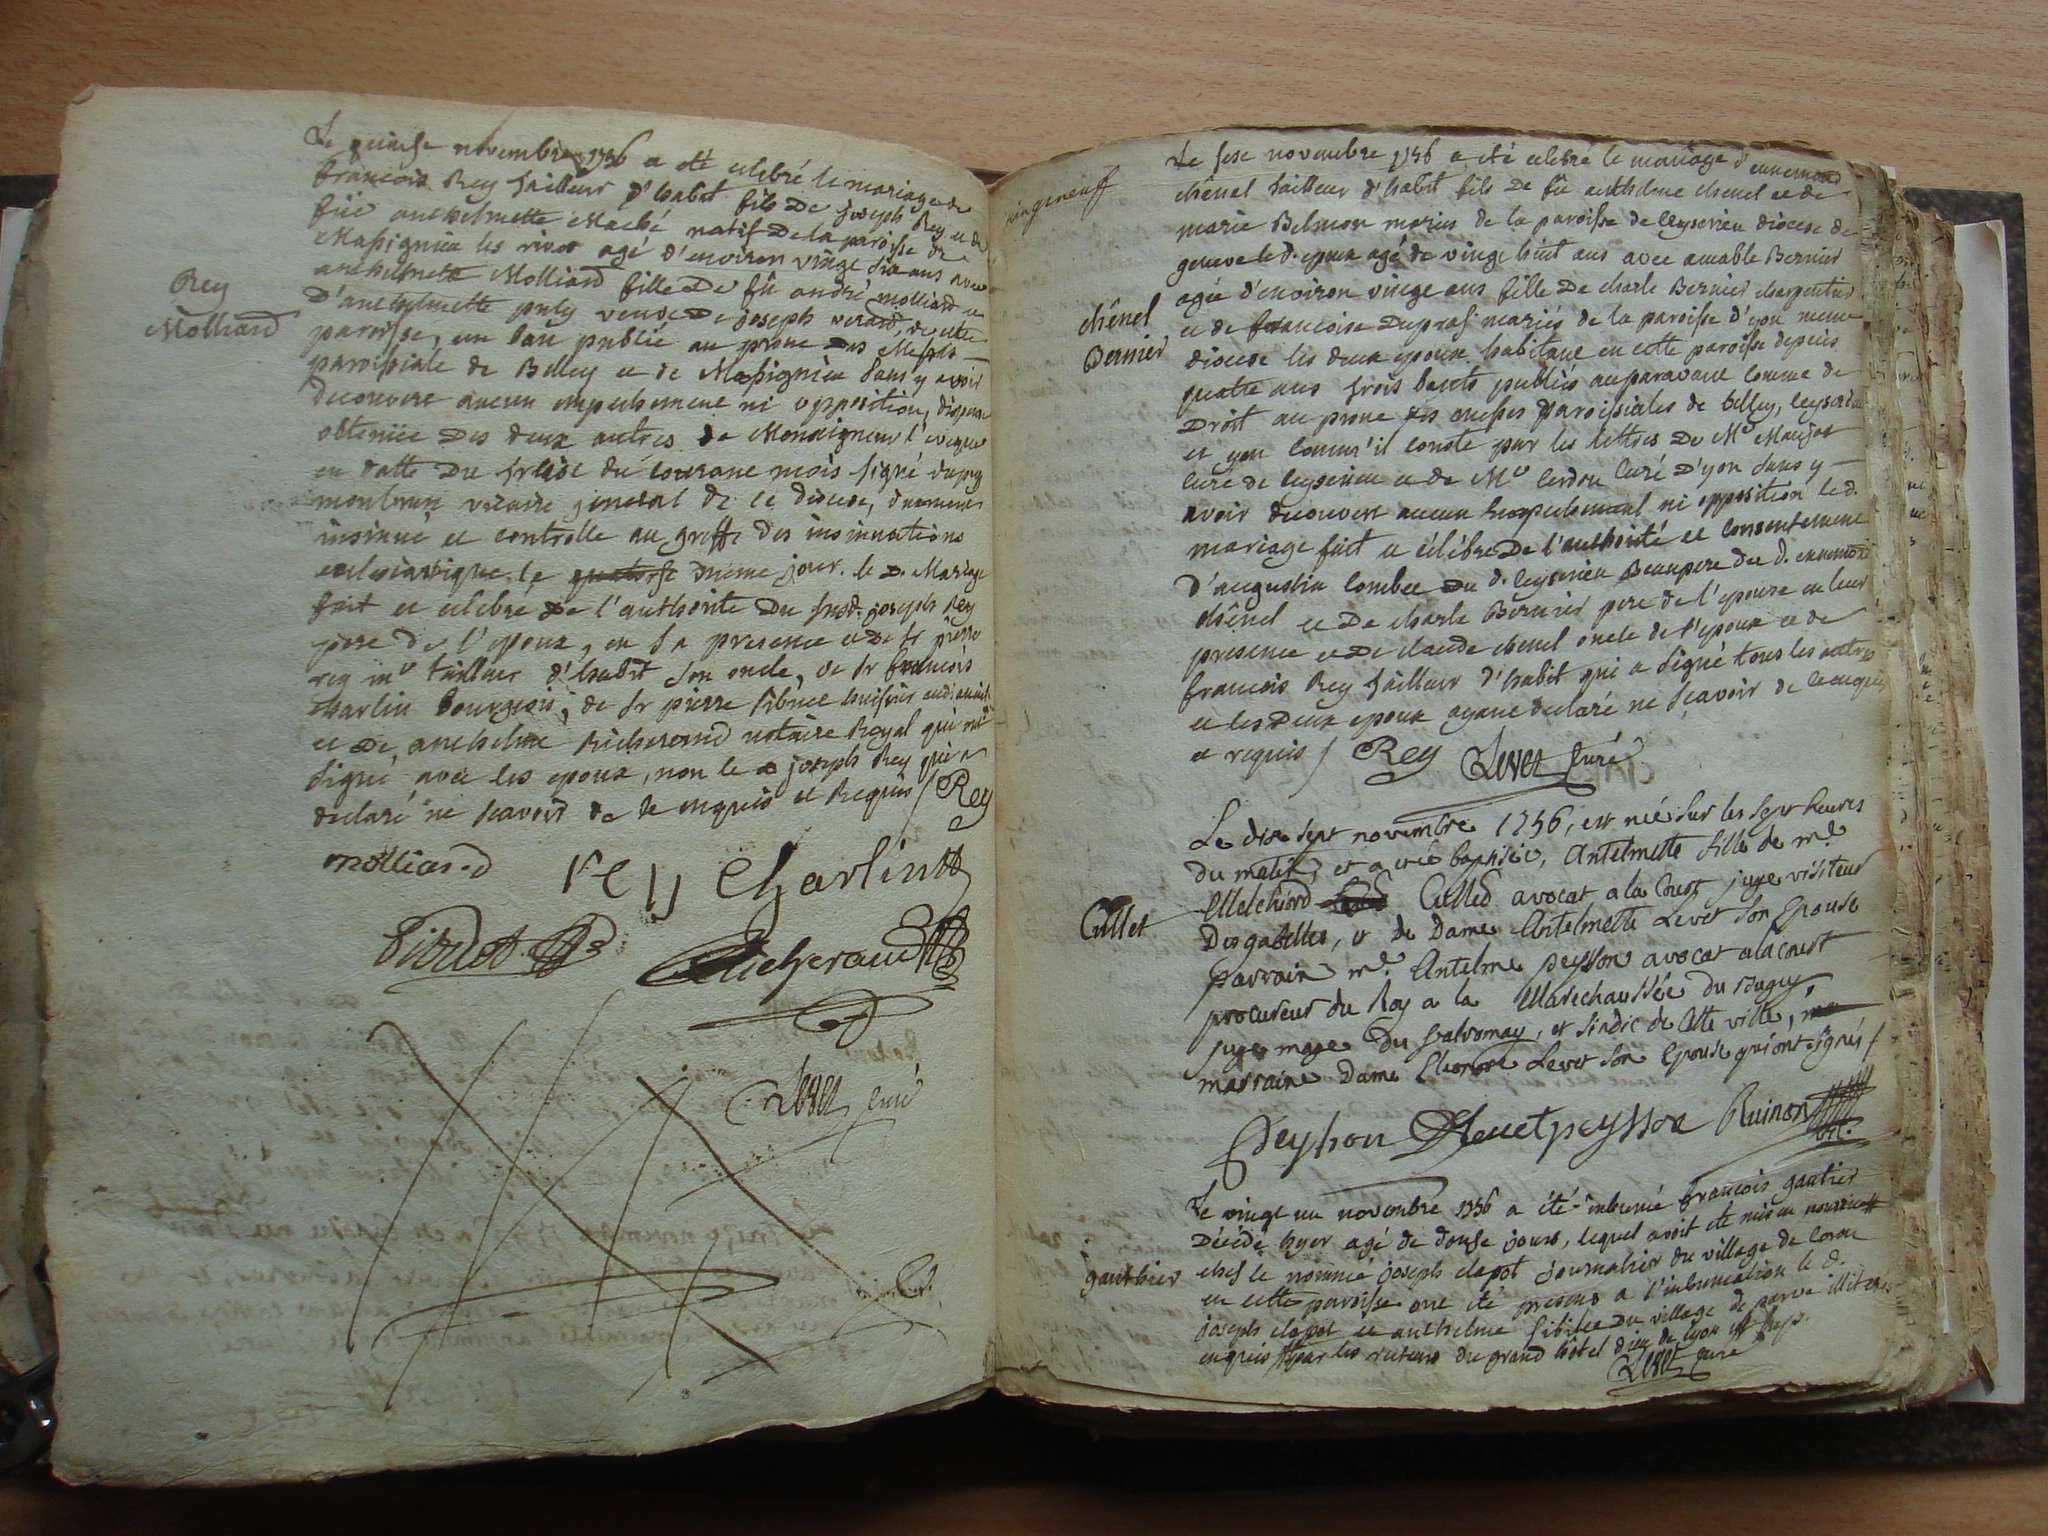 Rey
Molliard
Le quinse novembre 1756 a été celebré le mariage de
françois Rey tailleur d'habit fils de joseph Rey et de
füe anthelmette Maché natif de la paroisse de
Massignieu les rives agé d'environ vingt six ans avec
anthelmette Molliard fille de fû andré molliard et
d'anthelmette veuve de joseph de cette
paroisse, un ban publié au prone des Messes
paroissiale de Belley et de Massignieu sans y avoir
decouvert aucun empechement ni opposition, dispense
obtenüe des deux autres de Monseigneur l'eveque
en datte du treise du courant mois signé
vicaire general de ce diocese, duement
insinué et controlle au greffe des insinuations
eclesiastique le quatorse meme jour. le d. Mariage
fait et celebré de l'authorité du susd. joseph Rey
pere de l'epoux, en sa presence et de sr pierre
rey me tailleur d'habit son oncle, de sr françois
charlin bourgeois, de sr pierre huissier audiancier
et de anthelme Richerand notaire Royal qui ont
signé avec les epoux, non le joseph Rey qui a
declaré ne scavoir de ce enquis et Requis / Rey
molliard rey Charlin
Richerand
Levet curé
vingtneuf
chênel
Bernier
Le sese novembre 1756 a été celebré le mariage d'ennemond
chênel tailleur d'habit fils de fû anthelme chenel et de
marie Belmon mariés de la paroisse de Ceyserieu diocese de
geneve le d. epoux agé de vingt huit ans avec amable Bernier
agée d'environ vingt ans fille de charle Bernier charpentier
et de francoise mariés de la paroisse d'yon meme
diocese les deux epoux habitant en cette paroisse depuis
quatre ans trois bants publiés auparavant comme de
Droit au prone des messes paroissiales de belley, Ceyserieu
et yon comm'il conste par les lettres de Mr
curé de Ceyserieu et de Mr Cerdon curé d'yon sans y
avoir decouvert aucun empechement ni opposition le d.
mariage fait et célébré de l'authorité et consentement
d'augustin Combet du d. Ceyserieu Beaupere du d. ennemond
chênel et de charle Bernier pere de l'epouse en leur
presence et de claude chenel oncle de l'epoux et de
francois Rey tailleur d'habit qui a signé tous les autres
et les deux epoux ayant declaré ne scavoir de ce enquis
et requis / Rey Levet curé
Cullet
Le dix sept novembre 1756, est née sur les sept heures
du matin, et a été baptisée, Antelmette fille de mr.
Melchiord Culled avocat a la Court juge visiteur
Des gabelles, et de Dame Antelmette Levet son Epouse
parrain mr. Antelme peysson avocat alacourt
procureur du Roy a la Marechaussée du Bugey,
juge mage du valromay, et sindic de cette ville,
marraine Dame Eleonore Levet son Epouse qui ont signés /
Peysson Levet peysson Ruinon vic.
gauthier
Le vingt un novembre 1756 a été inhumé francois gautier
décédé hyer agé de douse jours, lequel avoit été mis en nourrice
chés le nommé joseph clapot journalier du village de Coron
en cette paroisse ont été presens a l'inhumation le d.
joseph clapot et anthelme du village de parve illiterés
enquis par les recteurs du grand hôtel dieu de lyon
Levet curé